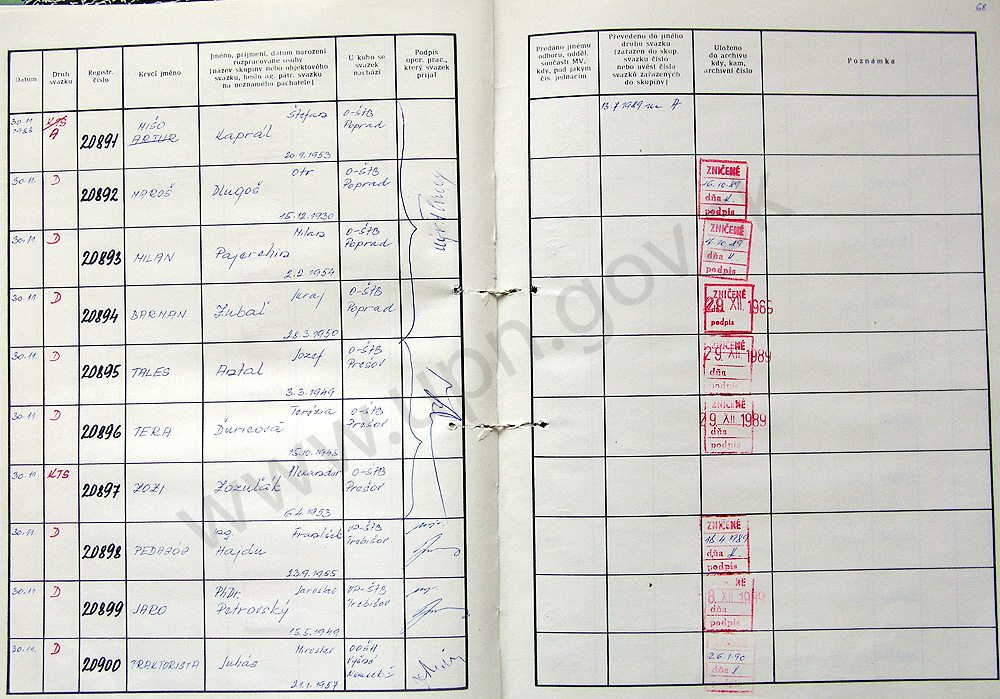 68
Dátum
Druh
sväzku
Registr.
číslo
Krycí jméno
Jméno, príjmení, datum narození
rozpracované osoby
(název skupiny nebo objektového
svazku, heslo ag. pátr. svazku
na neznámého pachatele)
U koho se
svazek
nachází
Podpis
oper. prac.,
který svazek
přijal
Předáno jinému
odboru, odděl.
součásti MV,
kdy, pod jakým
čís. jednacím
Převedeno do jiného
druhu svazku
(zařazen do skup.
svazků nebo
uvést čísla
svazků zařazených
do skupiny)
Uloženo
do archivu
kdy, kam,
archivní číslo
Poznámka
30.11.
1988
KTS
A
20891
MIŠO
ARTUR
Štefan
Kaprál
20.9.1953
O-ŠTB
Poprad
13.7.1989 na A
30.11.
D
20892
MAROŠ
Otr
Dlugoš
15.12.1930
O-ŠTB
Poprad
ZNIČENÉ
16.10.89
dňa
podpis
30.11.
D
20893
MILAN
Milan
Pajerchin
2.2.1954
O-ŠTB
Poprad
ZNIČENÉ
16.10.89
dňa
podpis
30.11.
D
20894
BARMAN
Juraj
Zubal
28.3.1950
O-ŠTB
Poprad
ZNIČENÉ
29. XII. 1988
podpis
30.11.
D
20895
TALES
Jozef
Antal
3.3.1949
O-ŠTB
Prešov
ZNIČENÉ
29. XII 1989
dňa
podpis
30.11.
D
20896
TERA
Terézia
Ďuricová
15.10.1948
O-ŠTB
Prešov
ZNIČENÉ
29. XII 1989
dňa
podpis
30.11.
KTS
20897
ZOZI
Alexander
Zozuľák
6.4.1953
O-ŠTB
Prešov
30.11.
D
20898
PEDAGÓG
Ing. František
Hajdu
23.9.1955
OO-ŠTB
Trebišov
ZNIČENÉ
18.4.1989
dňa
podpis
30.11.
D
20899
JARO
PhDr. Jaroslav
Petrovský
15.5.1949
OO-ŠTB
Trebišov
-8. XII 1989
dňa
podpis
30.11.
D
20900
TRAKTORISTA
Miroslav
Juhás
21.1.1957
26.1.90
dňa
podpis
www.upn.gov.sk